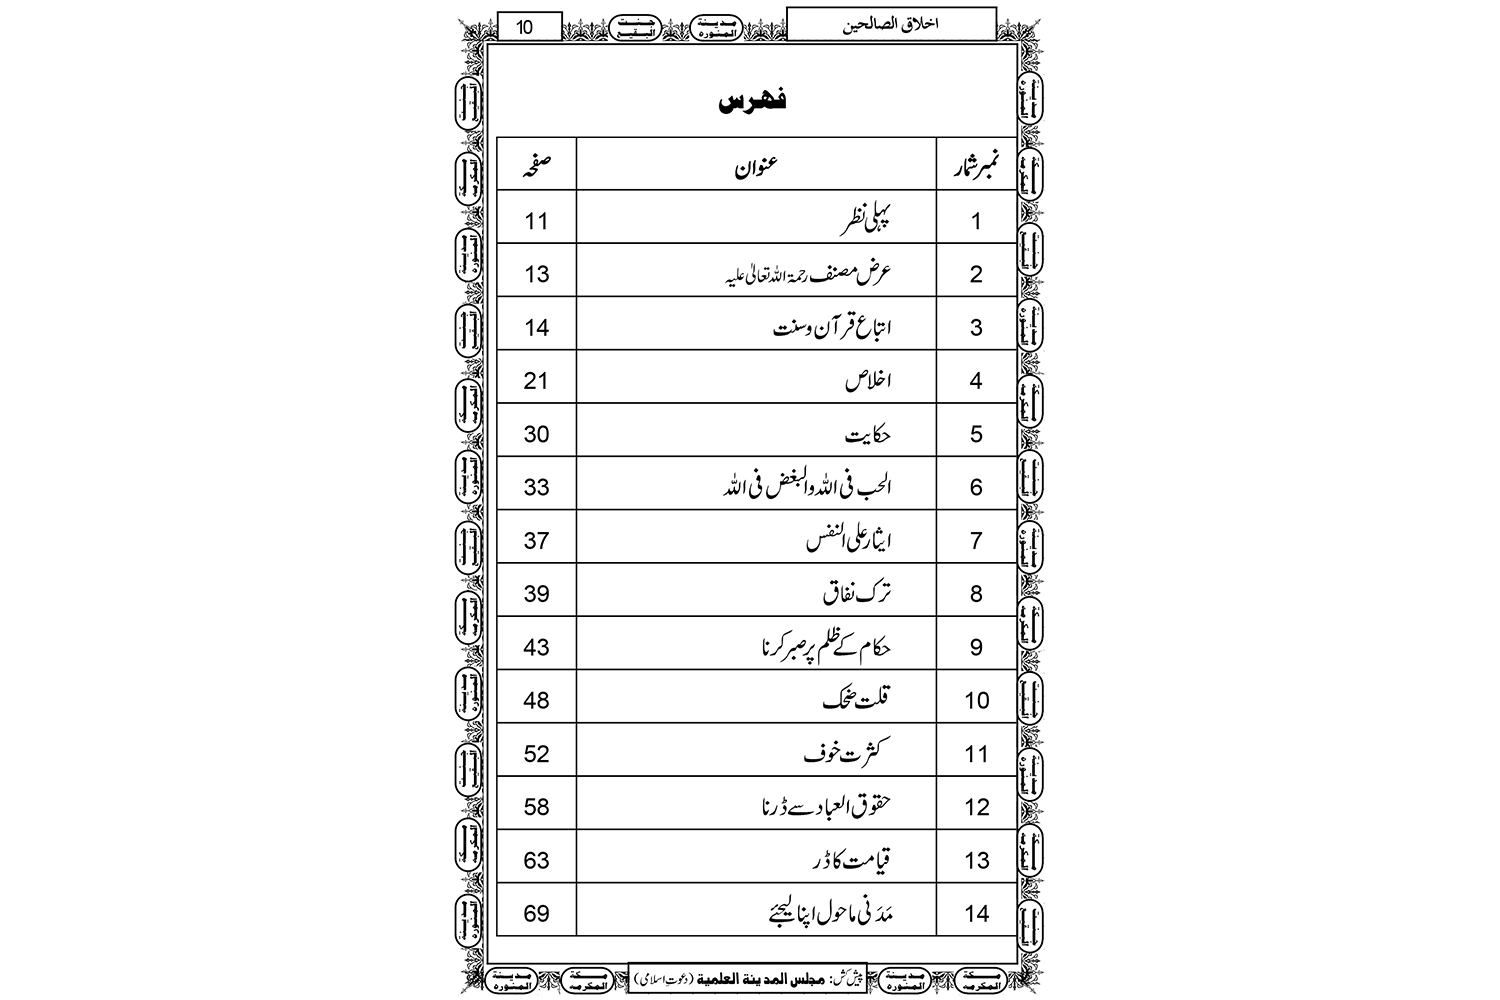 اخلاق الصالحین
مدینۃ المنورہ
جنت البقیع
10
فہرس
نمبر شمار عنوان صفحہ
1 پہلی نظر 11
2 عرض مصنف رحمۃ اللہ تعالیٰ علیہ 13
3 اتباع قرآن و سنت 14
4 اخلاص 21
5 حکایت 30
6 الحب فی اللہ والبغض فی اللہ 33
7 ایثار علی النفس 37
8 ترک نفاق 39
9 حکام کے ظلم پر صبر کرنا 43
10 قلت ضحک 48
11 کثرت خوف 52
12 حقوق العباد سے ڈرنا 58
13 قیامت کا ڈر 63
14 مَدَنی ماحول اپنا لیجئے 69
مکۃ المکرمہ
مدینۃ المنورہ
پیش کش: مجلس المدینۃ العلمیۃ (دعوتِ اسلامی)
مکۃ المکرمہ
مدینۃ المنورہ